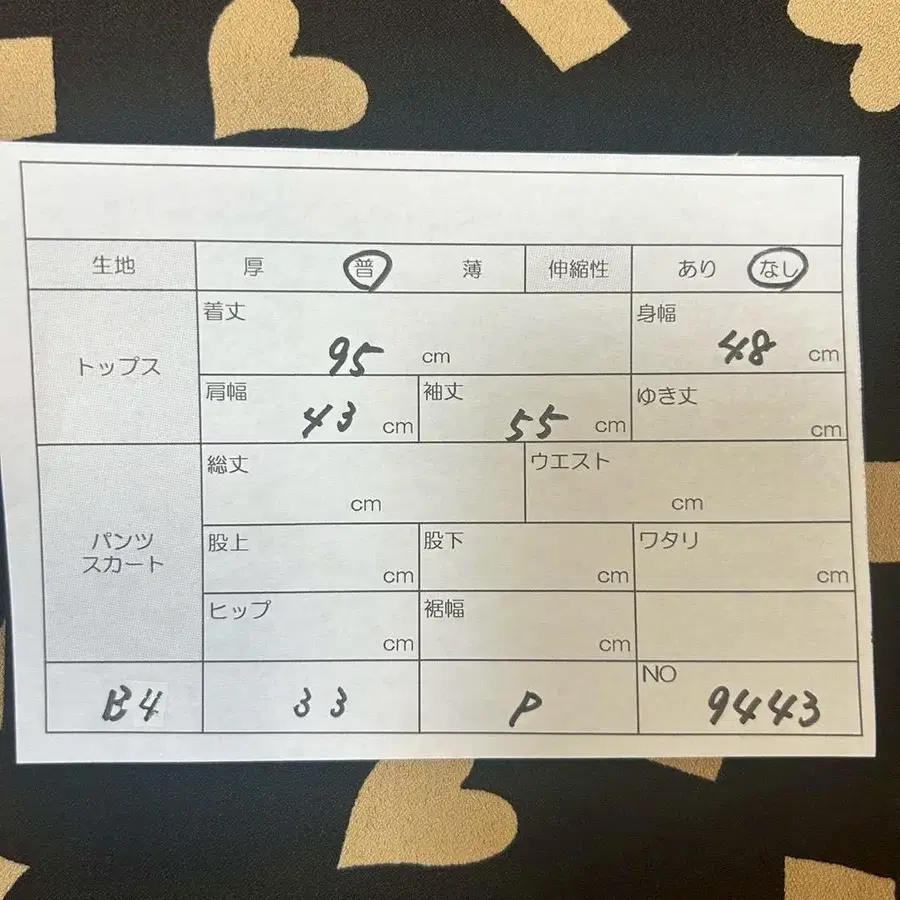 生地 厚 普 薄 伸縮性 あり なし
トップス
着丈 95 cm 身幅 48 cm
肩幅 43 cm 袖丈 55 cm ゆき丈 cm
パンツ
スカート
総丈 cm ウエスト cm
股上 cm 股下 cm ワタリ cm
ヒップ cm 裾幅 cm
B4 33 P NO 9443